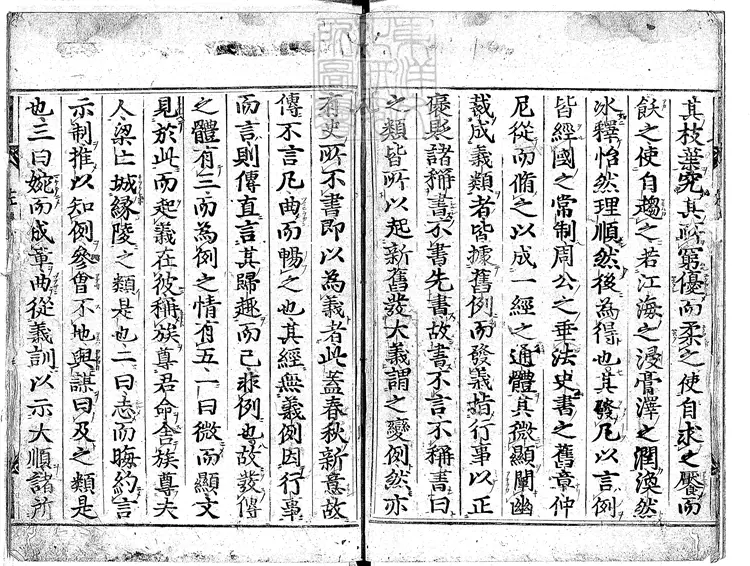 其枝葉究其所窮優而柔之使自求之饜而
飫之使自趨之若江海之浸膏澤之潤渙然
冰釋怡然理順然後為得也其發凡以言例
皆經國之常制周公之垂法史書之舊章仲
尼從而脩之以成一經之通體其微顯闡幽
裁成義類者皆據舊例而發義指行事以正
褒貶諸稱書不書先書故書不言不稱書曰
之類皆所以起新舊發大義謂之變例然亦
有史所不書即以為義者此蓋春秋新意故
傳不言凡曲而暢之也其經無義例因行事
而言則傳直言其歸趣而已非例也故發傳
之體有三而為例之情有五一曰微而顯文
見於此而起義在彼稱族尊君命舍族尊夫
人梁亡城緣陵之類是也二曰志而晦約言
示制推以知例參會不地與謀曰及之類是
也三曰婉而成章曲從義訓以示大順諸所